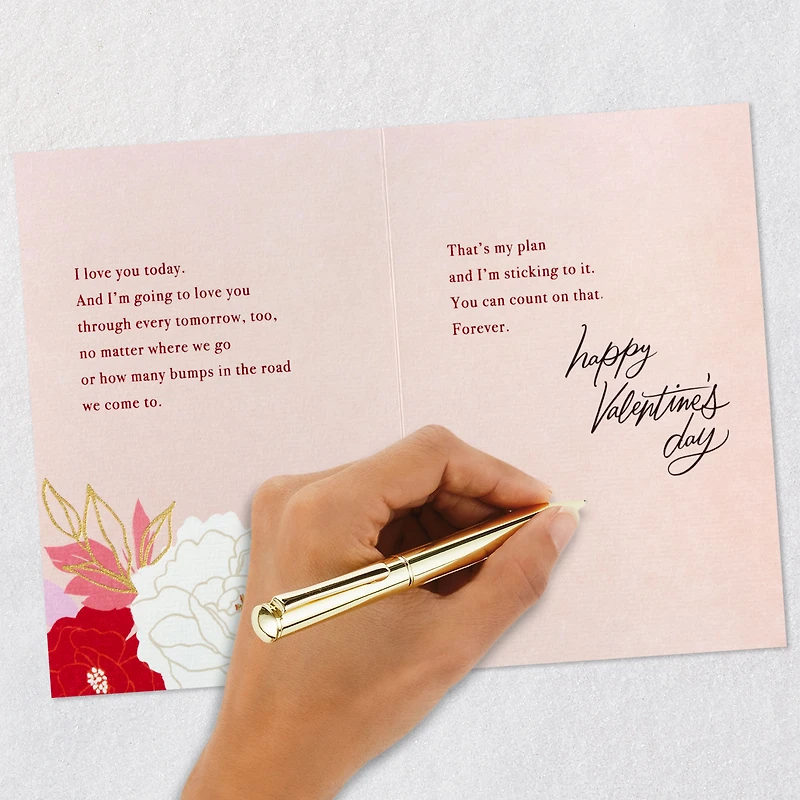 I love you today.
And I'm going to love you
through every tomorrow, too,
no matter where we go
or how many bumps in the road
we come to.
That's my plan
and I'm sticking to it.
You can count on that.
Forever.
happy
Valentine's
day